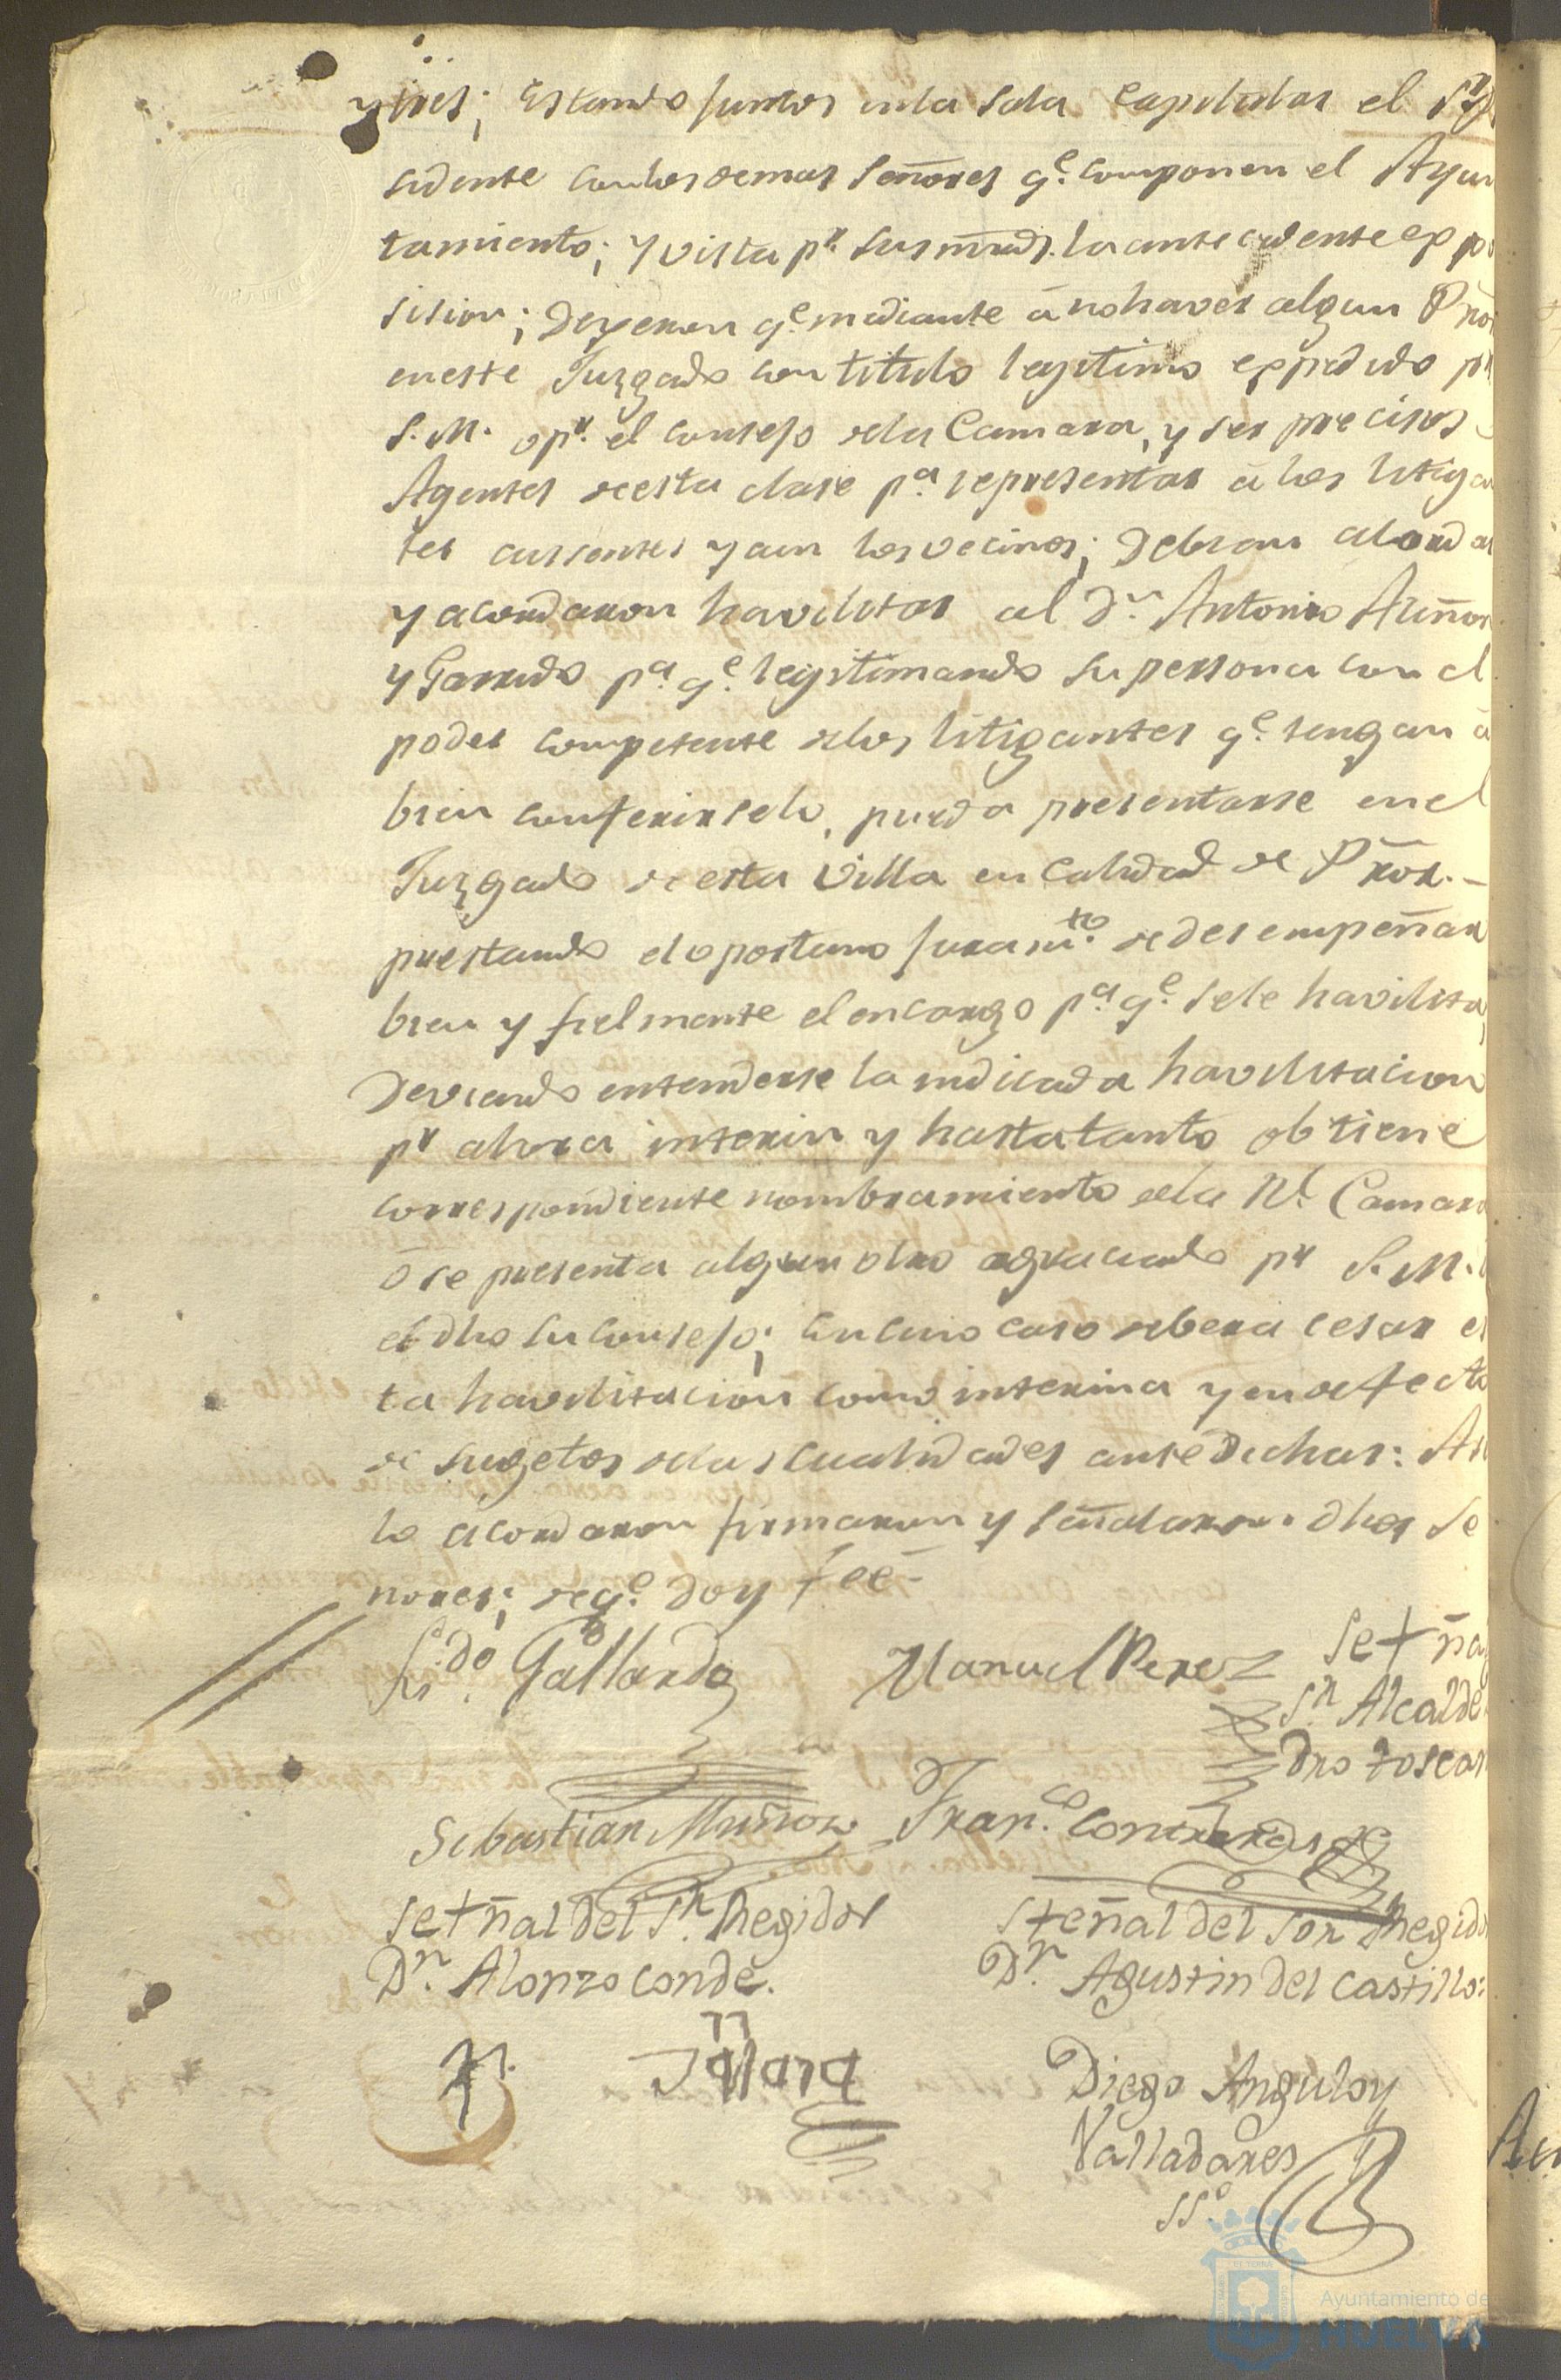 y tres; Estando juntos en la Sala Capitular el Sr
sidente con los demas Señores qe. componen el Ayun
tamiento; y vista pr. sus mrds. la antecedente expo
sision; Dixeron qe. mediante â no haver algun Prior
en este Juzgado con titulo legitimo expedido pr
S. M. o pr. el consejo de la Camara, y ser precisos
Agentes de esta clase pa. representar â los litigan
tes ausentes y aun los vecinos; Debian acordar
y acordaron havilitar al Dn. Antonio
y Garrido pa. qe. legitimando su persona con el
poder competente de los litigantes qe. tengan â
bien conferirselo, pueda presentarse en el
Juzgado de esta Villa en calidad de Pror. -
prestando el oportuno juramto. de desempeñar
bien y fielmente el encargo pa. qe. se le havilita,
Deviendo entenderse la indicada havilitacion
pr ahora interin y hasta tanto obtiene
correspondiente nombramiento de la Rl. Camara
ô se presenta algun otro agraciado pr S. M. o
el dho su consejo; en cuio caso debera cesar es
ta havilitacion como interina y en defecto
de sugetos de las cualidades antedichas: Asi
lo acordaron firmaron y señalaron dhos Se
nores; de qe. doy feé -
Lizdo. Gallardo Manuel Perez Se + ñal
Sn Alcalde
dro toscan
Sebastian Muñoz Franco. Contreras
Se + ñal del Sr. Regidor S + eñal del Sor Regido
Dn. Alonzo conde. Dn. Agustin del castillo:
Diego Angulo y
Valladares
SSo.
Ayuntamiento de
HUELVA